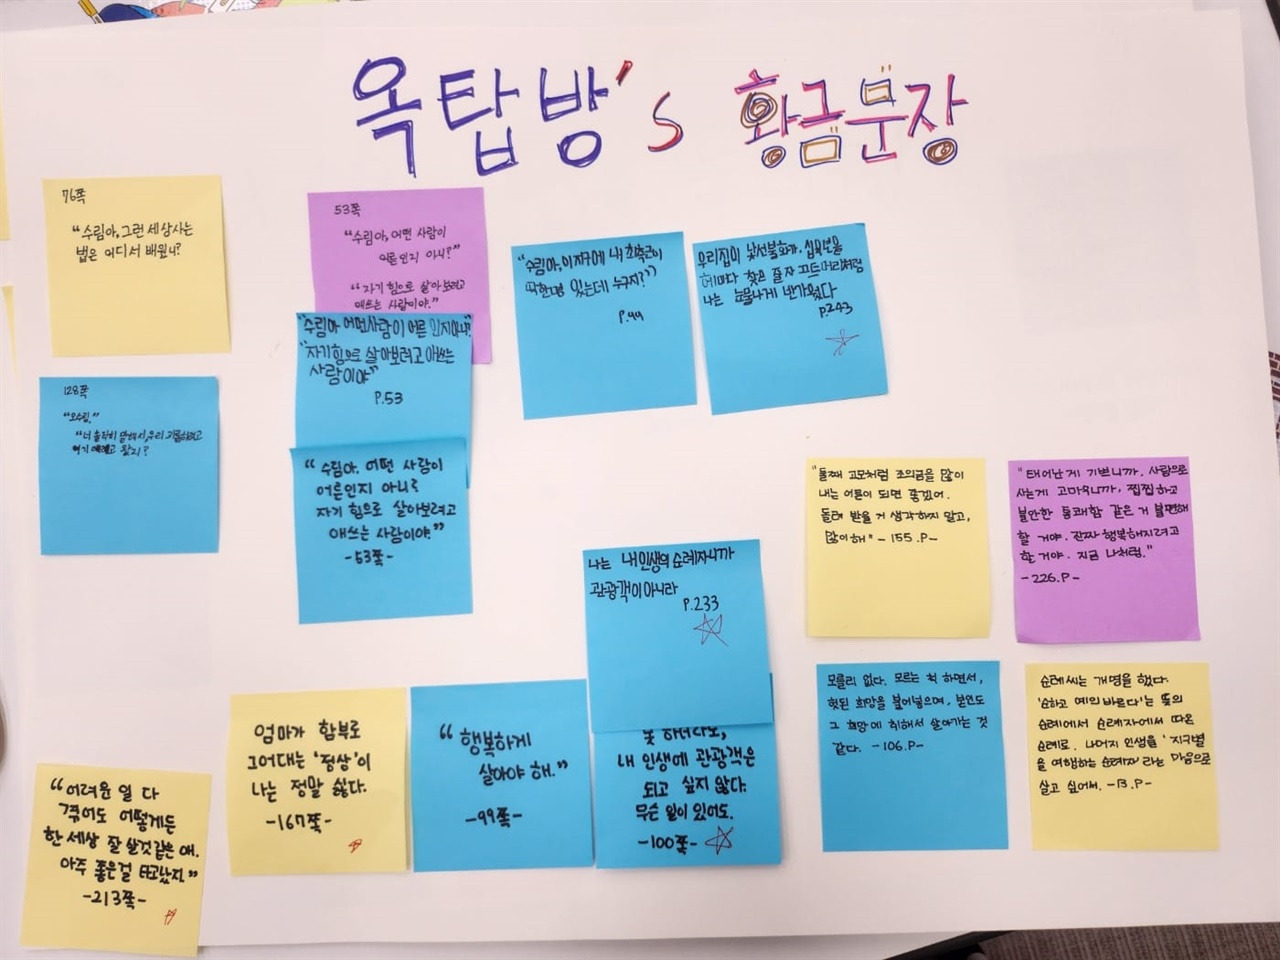 옥탑방's 황금문장
76쪽
"수림아, 그런 세상사는
법은 어디서 배웠니?
53쪽
"수림아, 어떤 사람이
어른인지 아니?"
"자기 힘으로 살아보려고
애쓰는 사람이야."
"수림아 어떤사람이 어른 인지아니?
"자기힘으로 살아보려고 애쓰는
사람이야"
P.53
"수림아. 어떤 사람이
어른인지 아니?
자기 힘으로 살아보려고
애쓰는 사람이야"
-53쪽-
"수림아, 이지구에 내 최측근이
딱한명 있는데 누구지?"
P.99
우리집이
나는 눈물나게 반가웠다
P243
128쪽
"오수림."
"너 솔직히 말해서, 우리
여기 왔지?
"둘째 고모처럼 조의금을 많이
내는 어른이 되면 좋겠어.
돌려 받을 거 생각하지 말고,
많이해" -155.P-
"태어난게 기쁘니까, 사람으로
사는게 고마우니까, 찝찝하고
불안한 통쾌함 같은 거 불편해
할 거야. 진짜 행복해지려고
할 거야. 지금 나처럼."
-226.P-
나는 내인생의 순례자니까
관광객이아니라
P.233
하더라도,
내 인생에 관광객은
되고 싶지 않다.
무슨 일이 있어도.
-100쪽-
모를리 없다. 모르는 척 하면서,
헛된 희망을 불어넣으며, 본인도
그 희망에 취해서 살아가는 것
같다. -106.P-
순례씨는 개명을 했다.
'순하고 예의바르다'는 뜻의
순례에서 순례자에서 따온
순례로. 나머지 인생을 '지구별
을 여행하는 순례자'라는 마음으로
살고 싶어서. -13.P-
엄마가 함부로
그어대는 '정상'이
나는 정말 싫다.
-167쪽-
"행복하게
살아야 해."
-99쪽-
"어려운 일 다
겪어도 어떻게든
한 세상 잘 살것 같은 애.
아주 좋은걸 타고났지"
-213쪽-